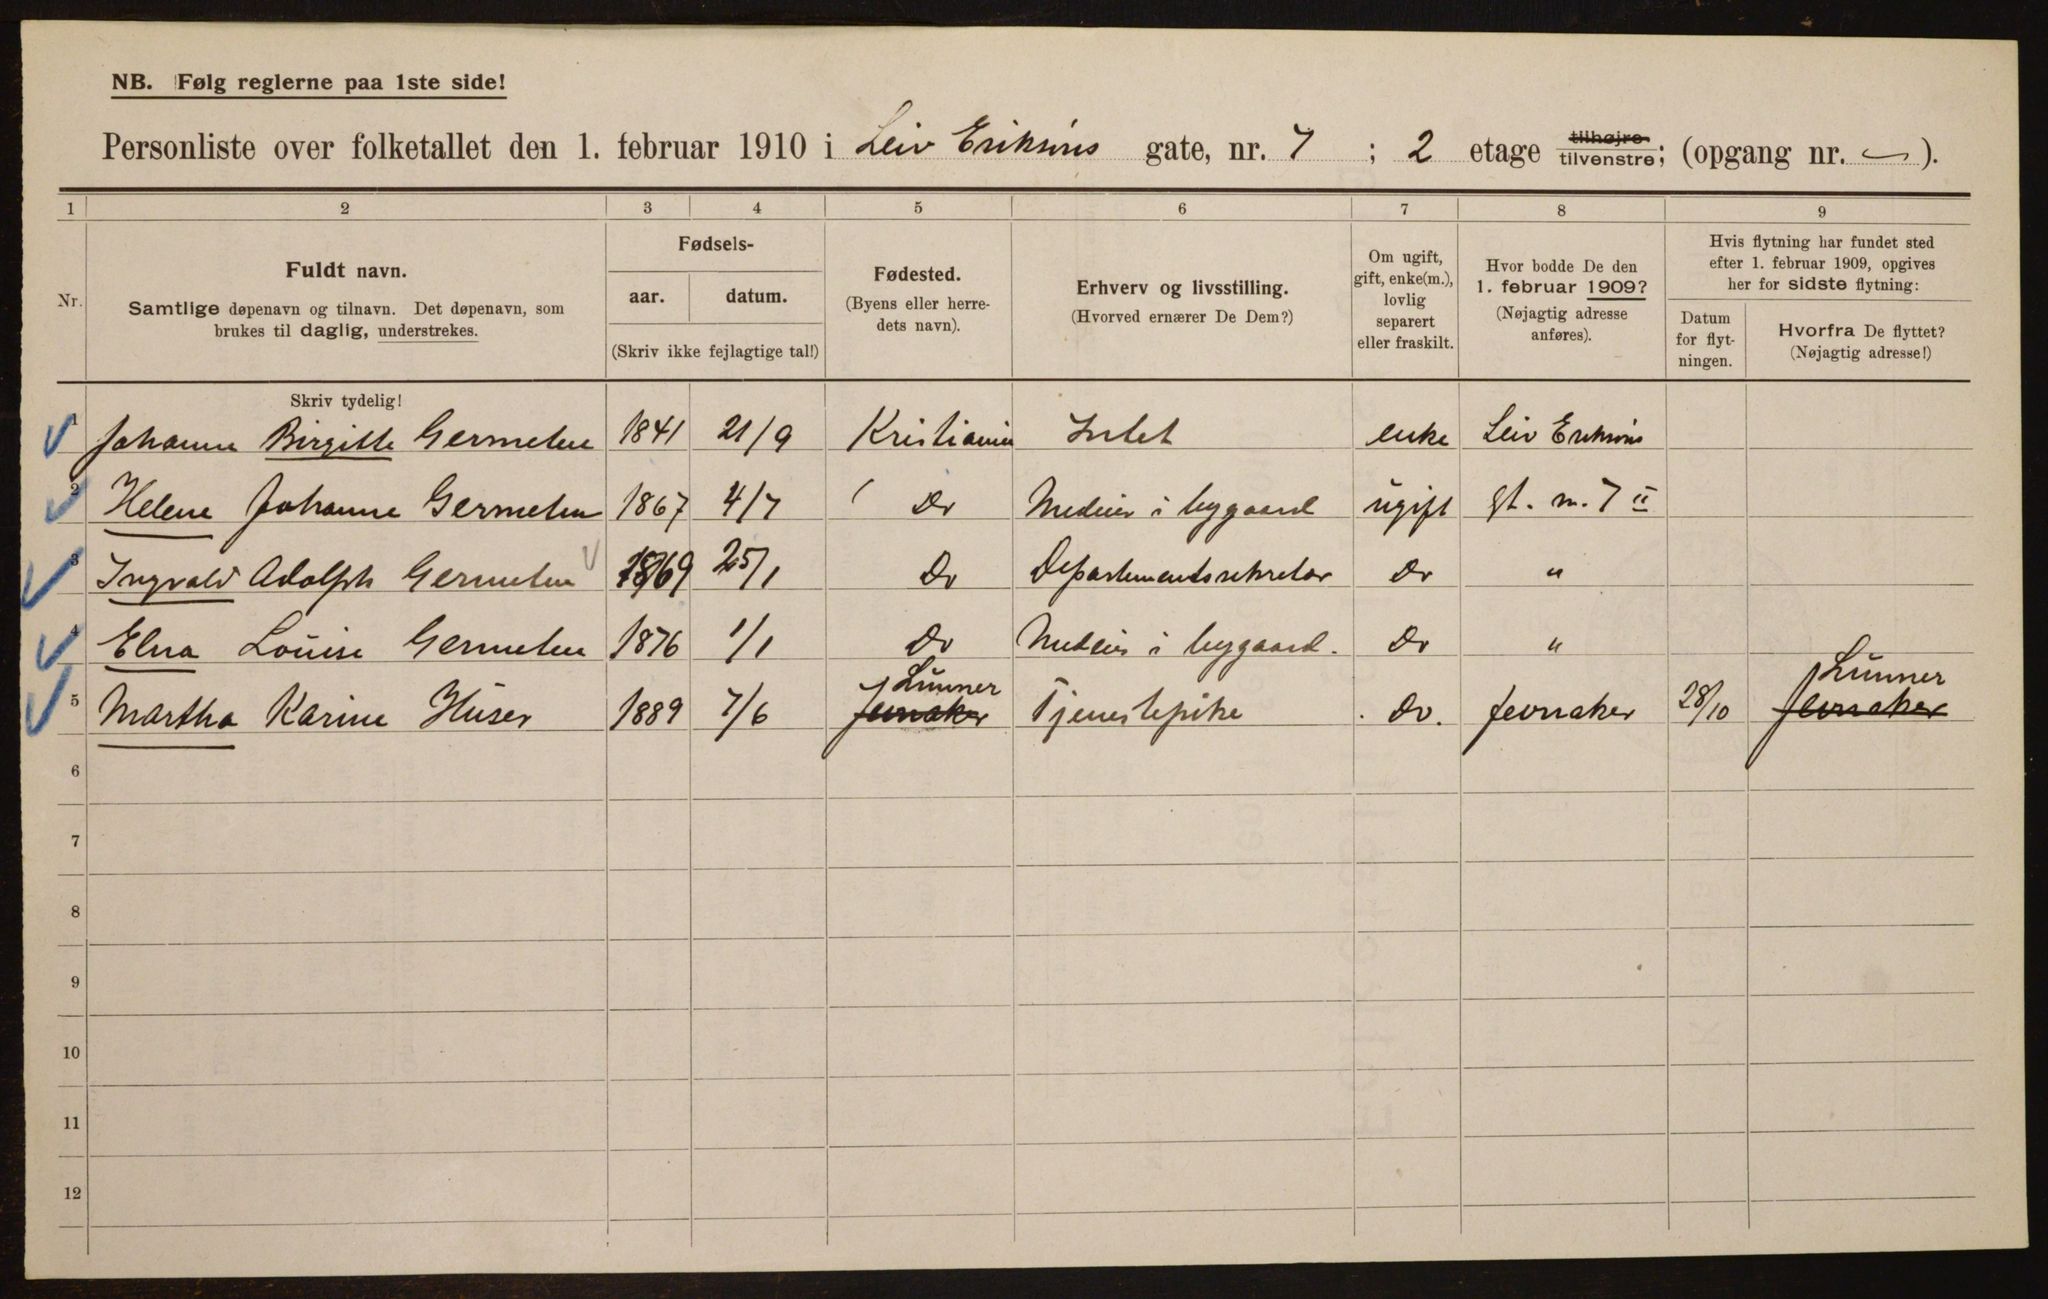 NB. Følg reglerne paa 1ste side!
Personliste over folketallet den 1. februar 1910 i Leiv Eriksøns gate, nr. 7 ; 2 etage tilhøjre tilvenstre; (opgang nr. — ).
1 2 3 4 5 6 7 8 9
Nr.
Fuldt navn.
Samtlige døpenavn og tilnavn. Det døpenavn, som
brukes til daglig, understrekes.
Skriv tydelig!
Fødsels-
aar. datum.
(Skriv ikke fejlagtige tal!)
Fødested.
(Byens eller herre-
dets navn).
Erhverv og livsstilling.
(Hvorved ernærer De Dem?)
Om ugift,
gift, enke(m.),
lovlig
separert
eller fraskilt.
Hvor bodde De den
1. februar 1909?
(Nøjagtig adresse
anføres).
Hvis flytning har fundet sted
efter 1. februar 1909, opgives
her for sidste flytning:
Datum
for flyt-
ningen.
Hvorfra De flyttet?
(Nøjagtig adresse!)
1 Johanne Birgitte Germeten 1841 21/9 Kristiania Intet enke Leiv Eriksøns
2 Helene Johanne Germeten 1867 4/7 Do Medeier i bygaard ugift gt. nr. 7 II
3 Ingvald Adolph Germeten 1869 25/1 Do Departementssekretær Do "
4 Elna Louise Germeten 1876 1/1 Do Medeier i bygaard. Do "
Lunner Lunner
5 Martha Karine Huser 1889 7/6 Jevnaker Tjenestepike Do. Jevnaker 28/10 Jevnaker
6
7
8
9
10
11
12